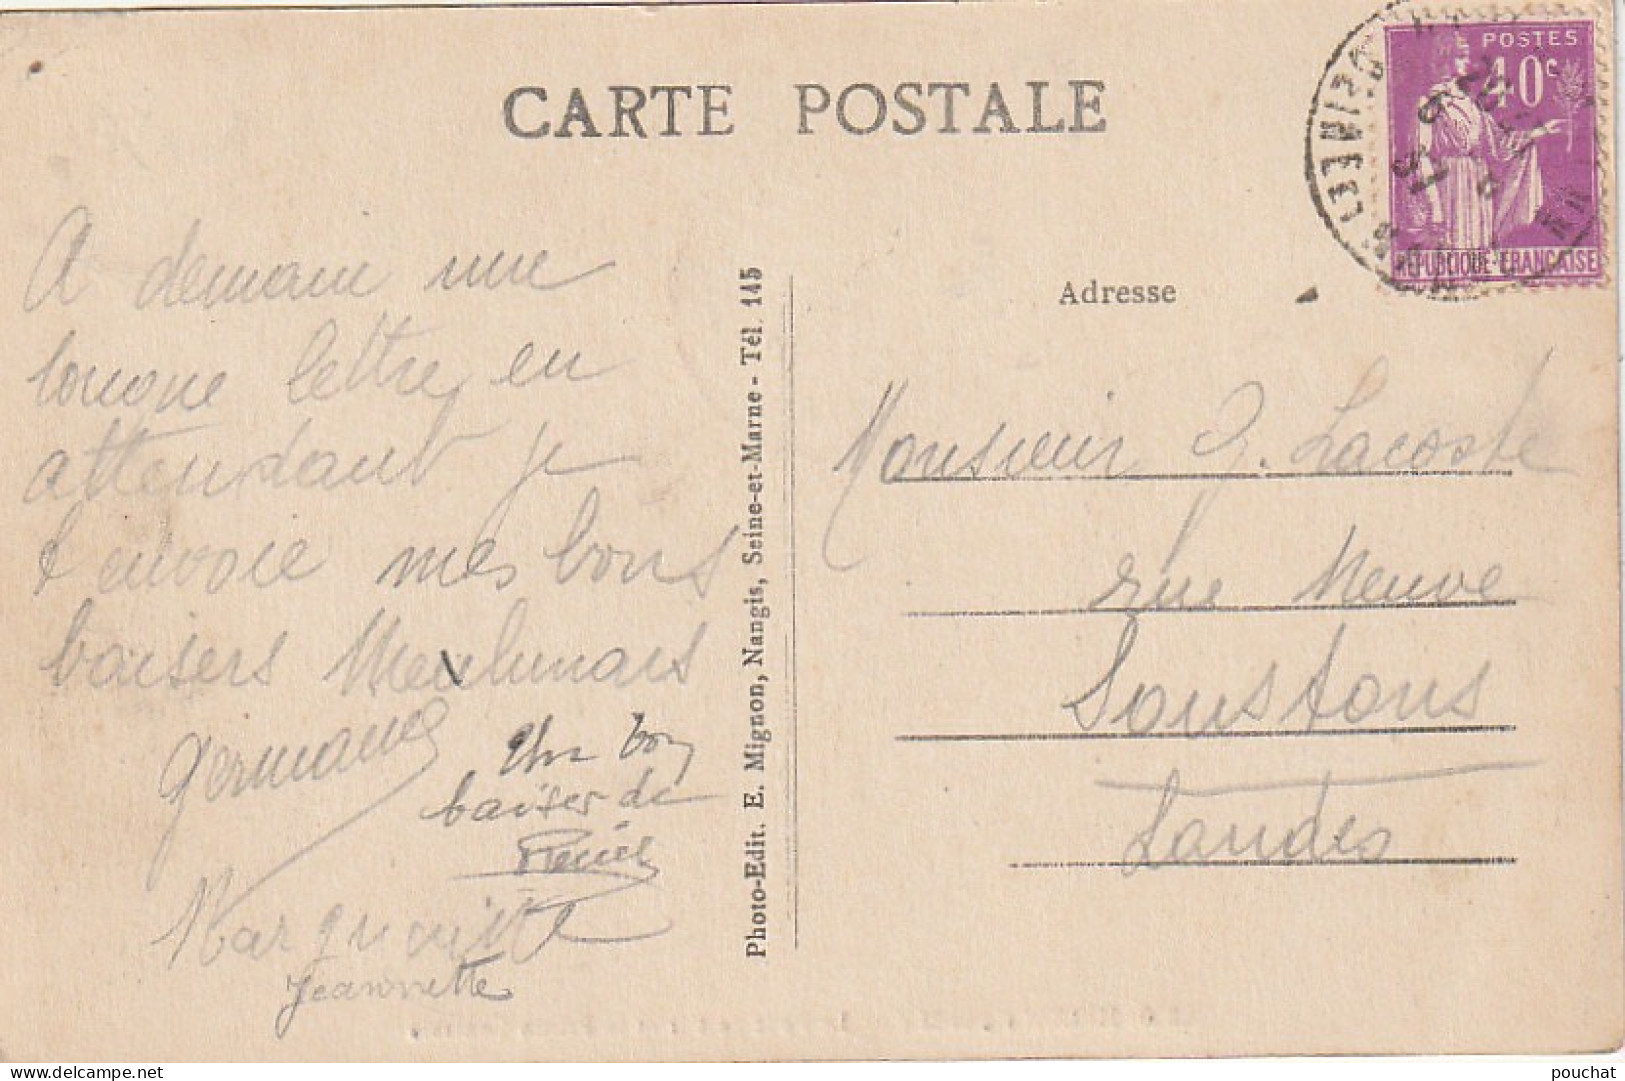 CARTE POSTALE
RF POSTES
40c
REPUBLIQUE FRANÇAISE
Adresse
A demain une
longue lettre, en
attendant je
t'envoie mes bons
baisers
Germaine
Un bon
baiser de
Renée
Marguerite
Jeannette
Photo-Edit. E. Mignon, Nangis, Seine-et-Marne - Tél. 145
Monsieur G. Lacoste
rue Neuve
Soustons
Landes
pouchat